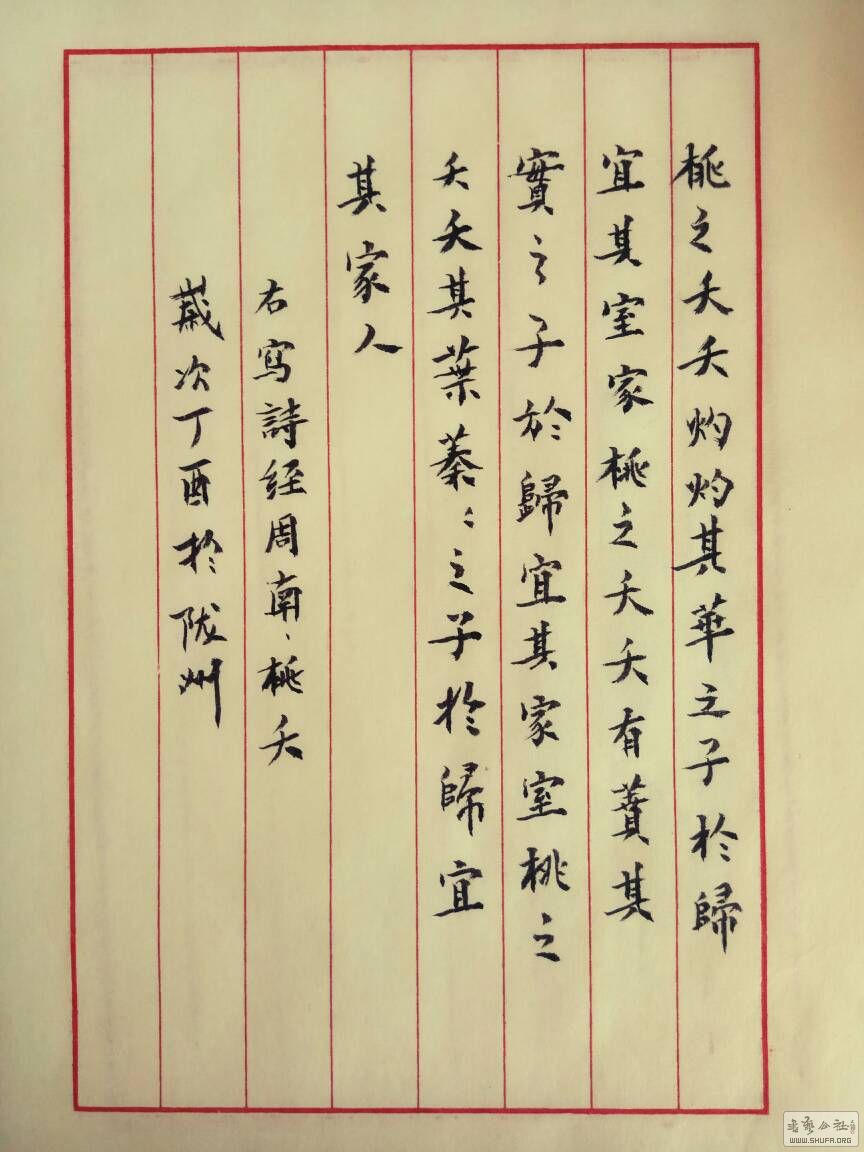 桃之夭夭灼灼其華之子於歸
宜其室家桃之夭夭有蕡其
實之子於歸宜其家室桃之
夭夭其葉蓁〻之子於歸宜
其家人
右寫詩經周南、桃夭
歲次丁酉於陇州
书艺公社
WWW.SHUFA.ORG